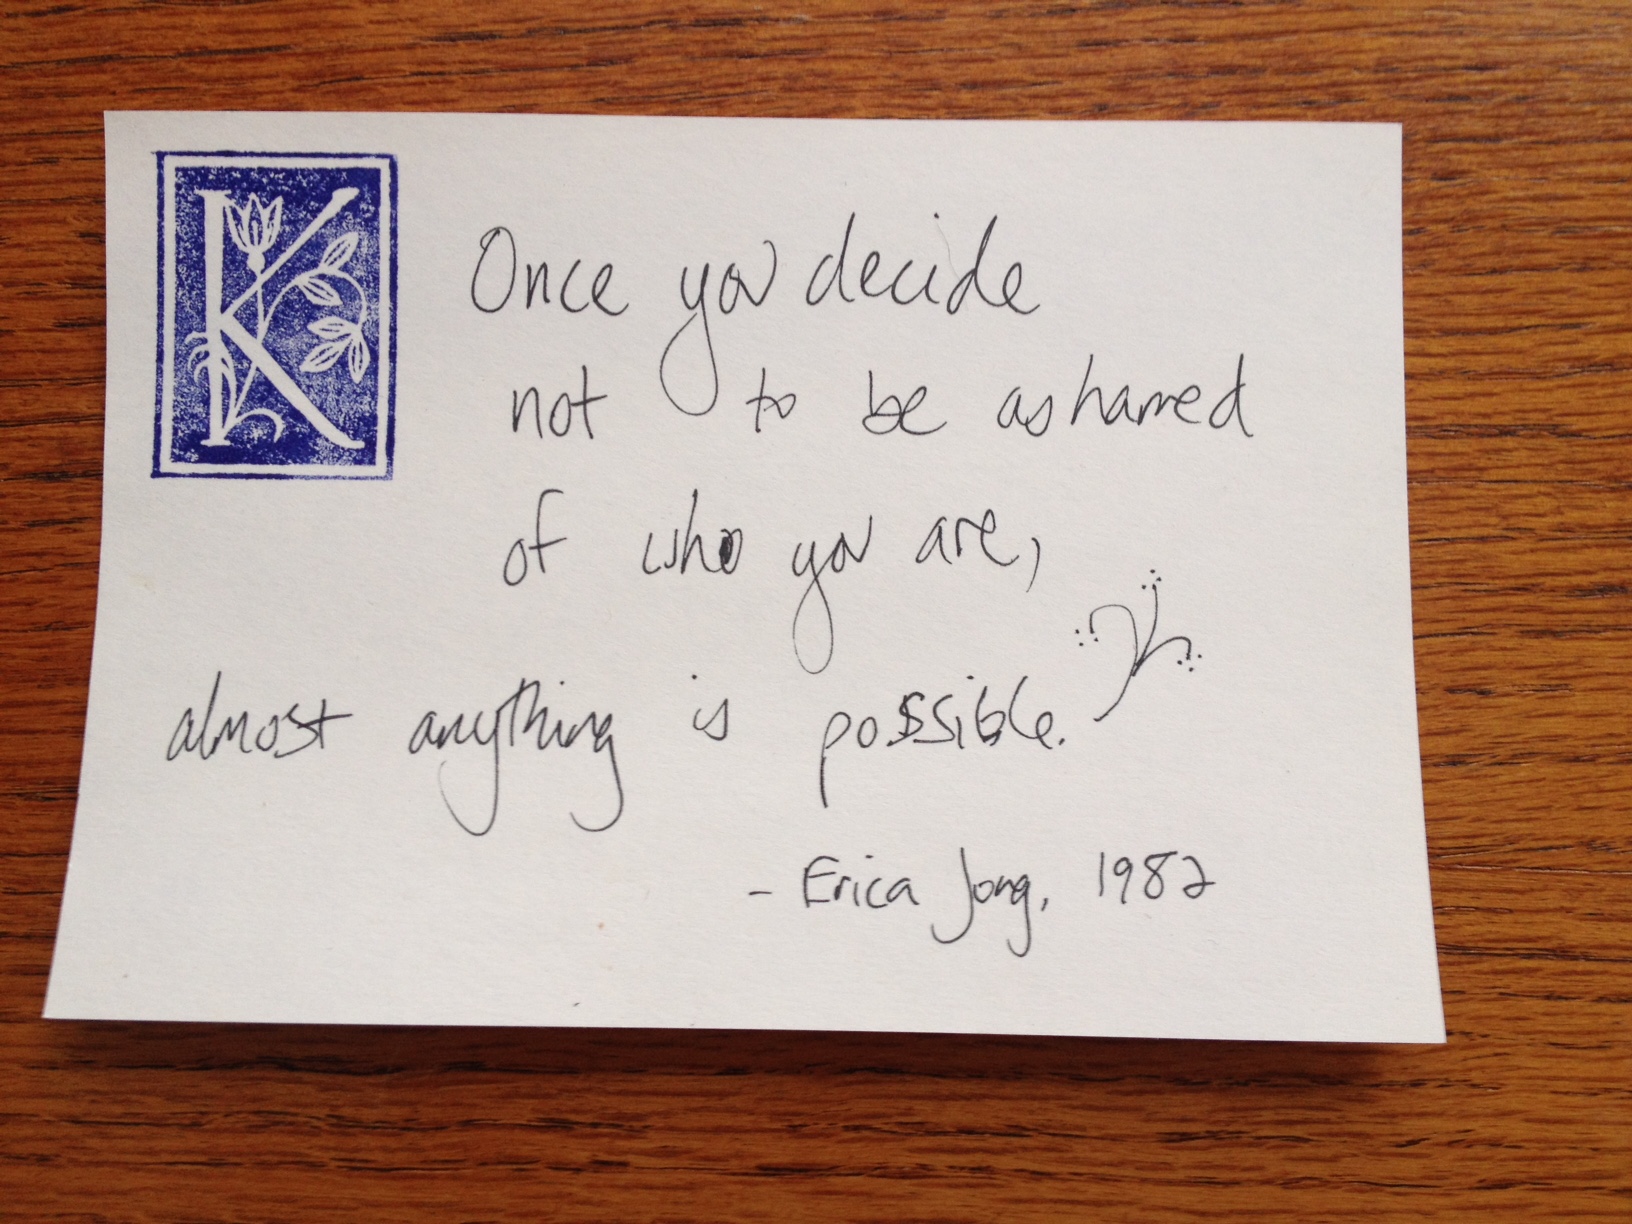 K
Once you decide
not to be ashamed
of who you are,
almost anything is possible.
- Erica Jong, 1982